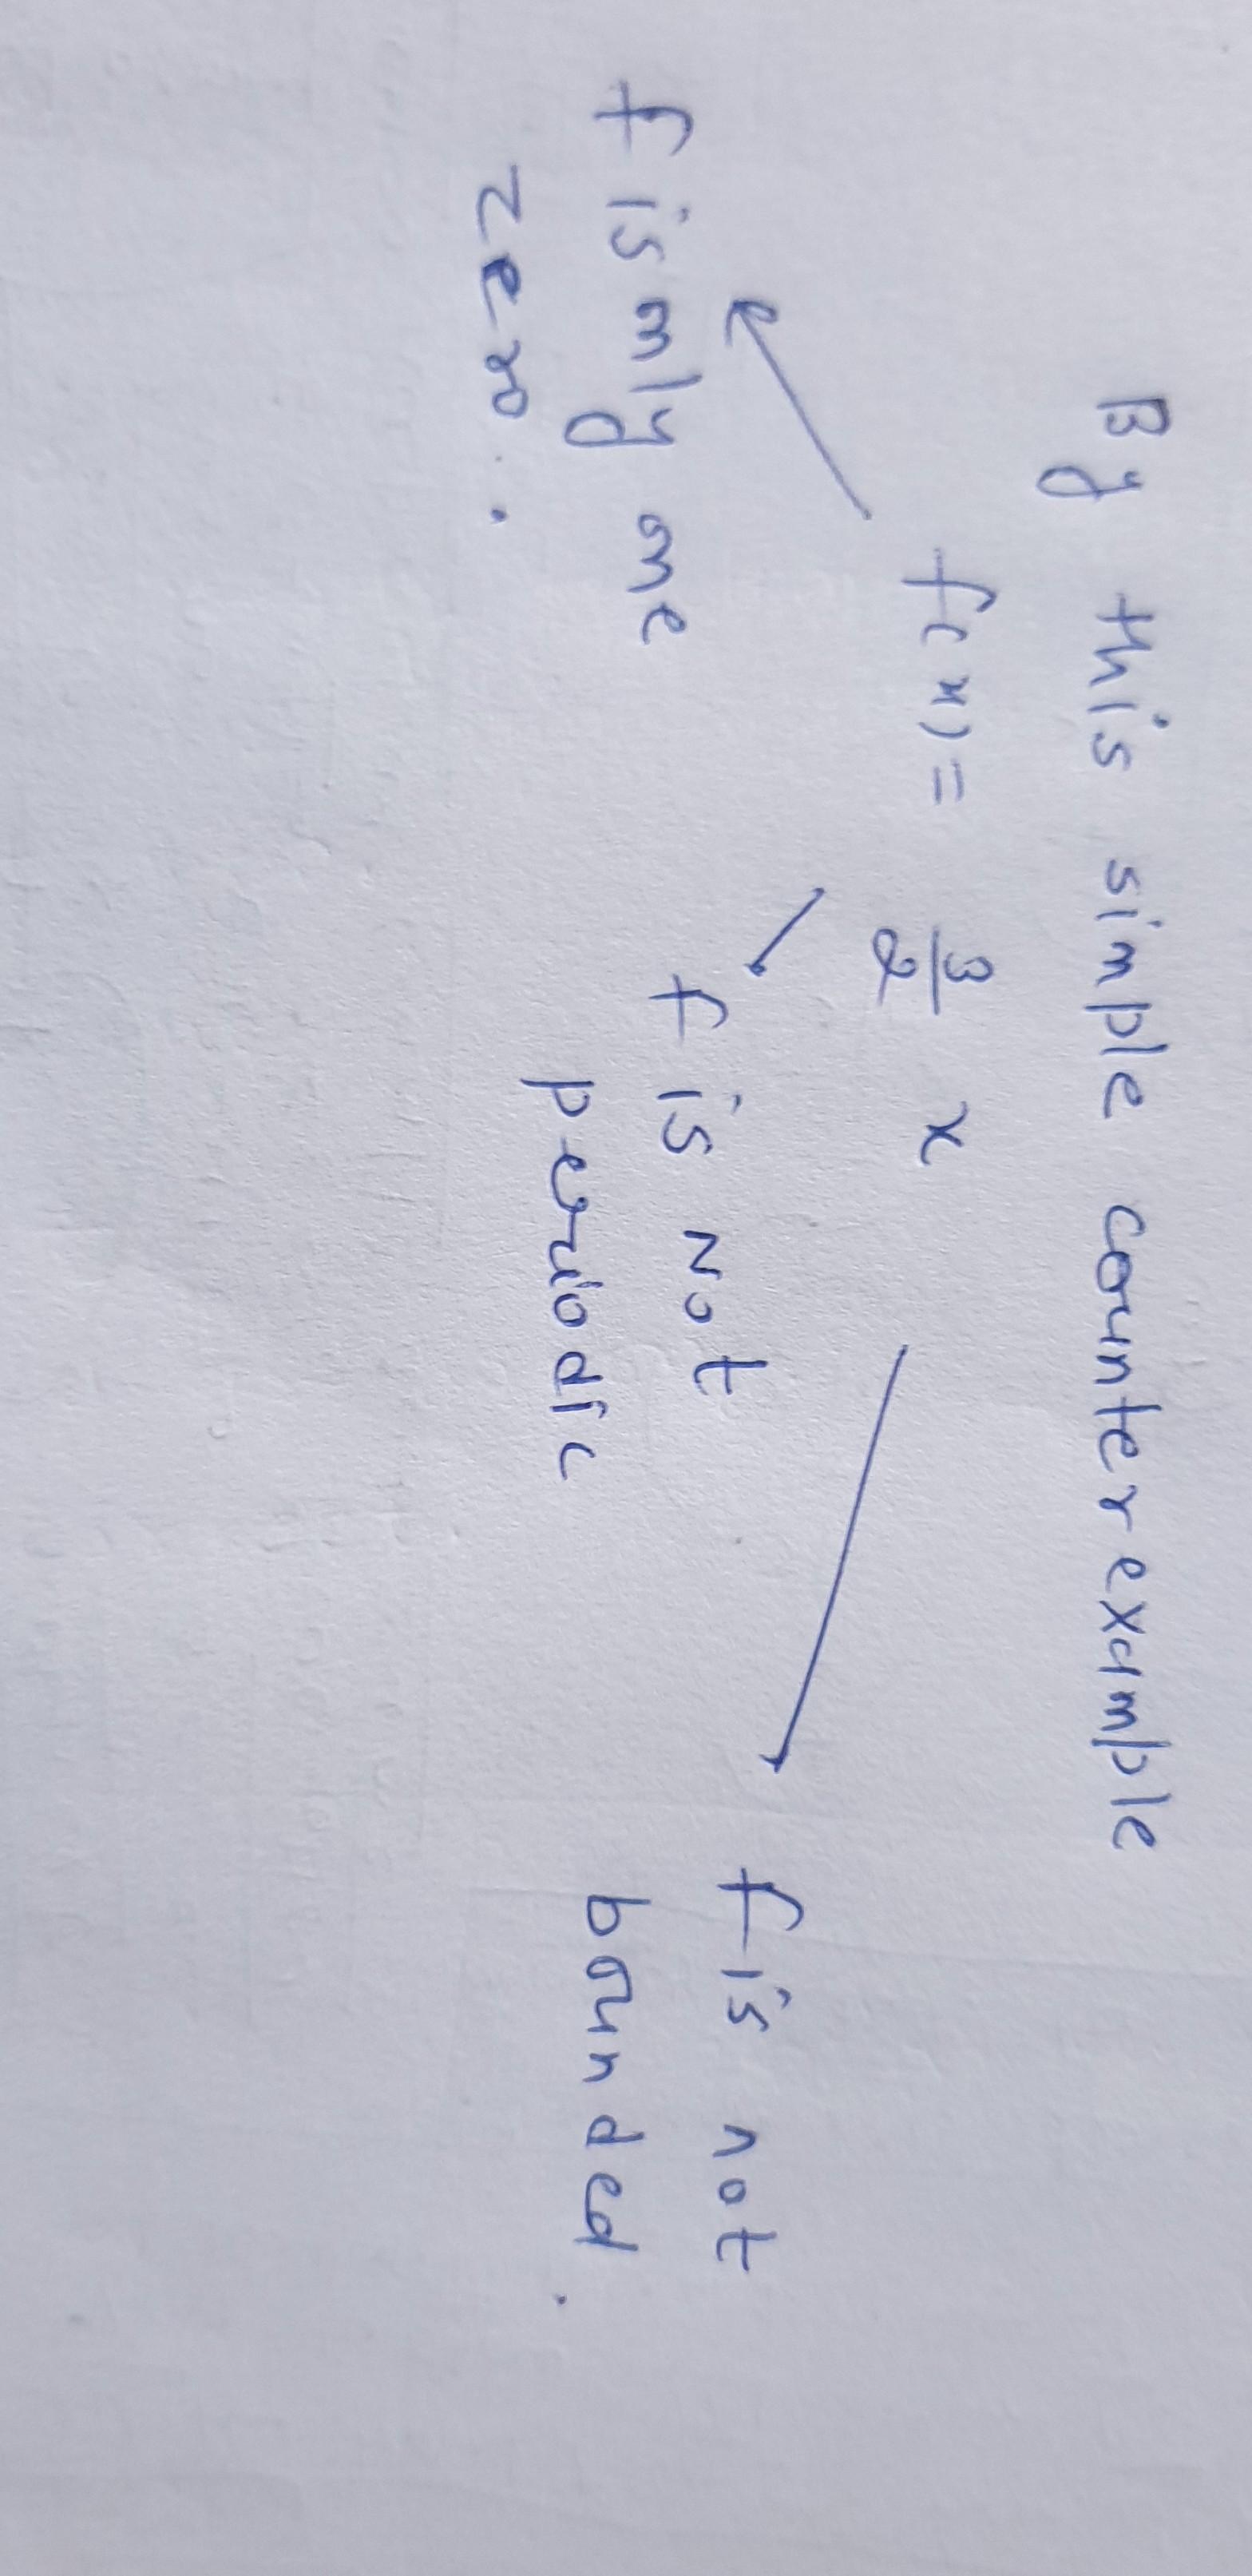 By this simple counter example
f(x) = 3/2 x
f is only one
zero.
f is not
periodic
f is not
bounded.